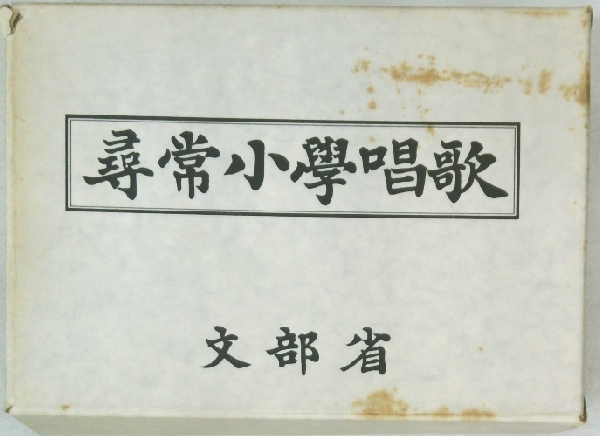 尋常小學唱歌
文部省